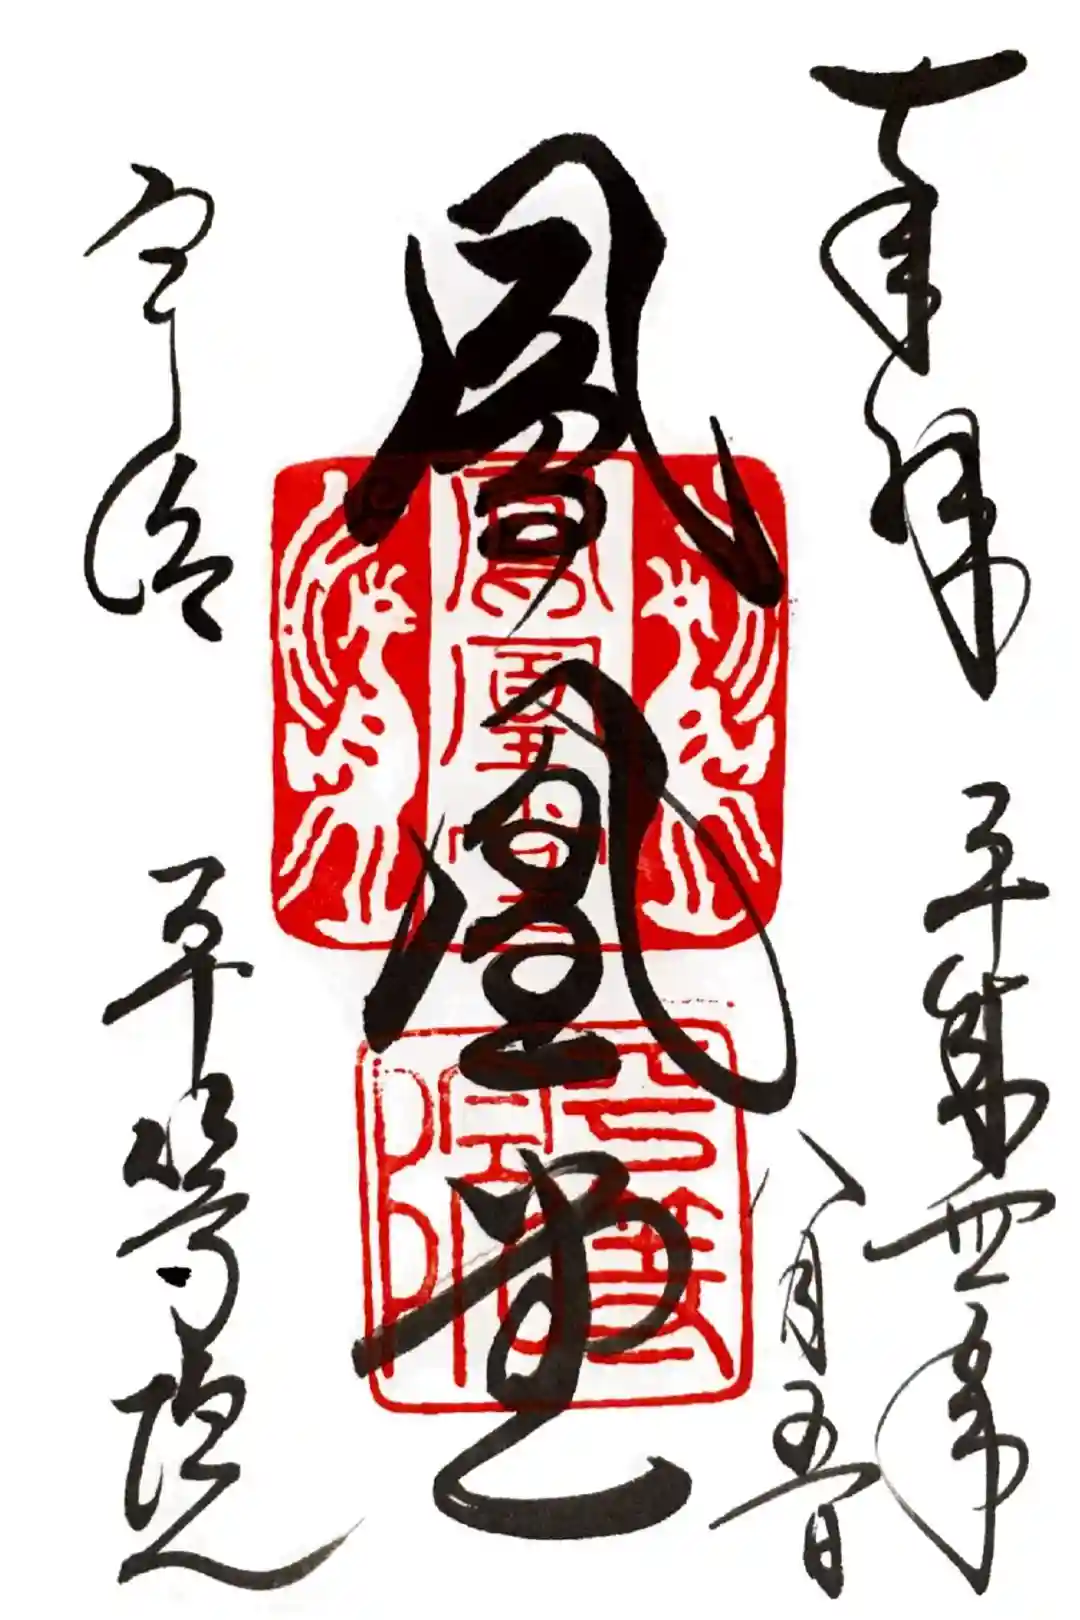 奉拝
平成四年
八月五日
鳳凰堂
宇治
平等院
鳳凰堂
平等院